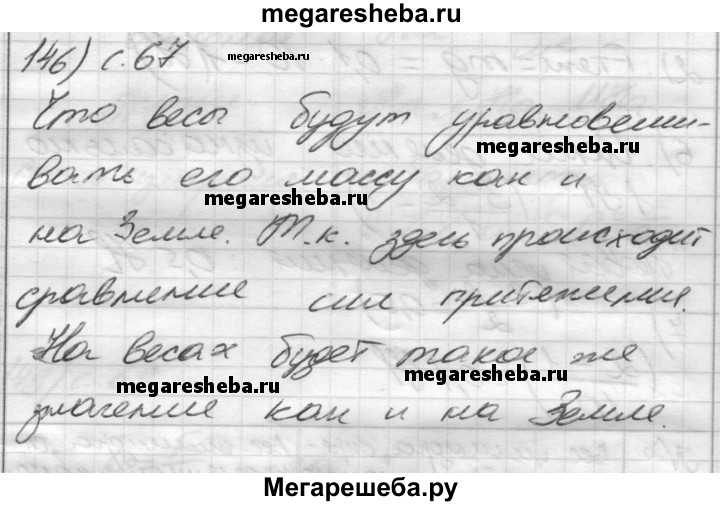 megaresheba.ru
146) с. 67
megaresheba.ru
Что весы будут уравновеши-
megaresheba.ru
вать его массу как и
megaresheba.ru
на Земле. Т.к. здесь происходит
сравнение сил притяжения.
На весах будет такое же
megaresheba.ru
megaresheba.ru
значение как и на Земле.
Мегарешеба.ру